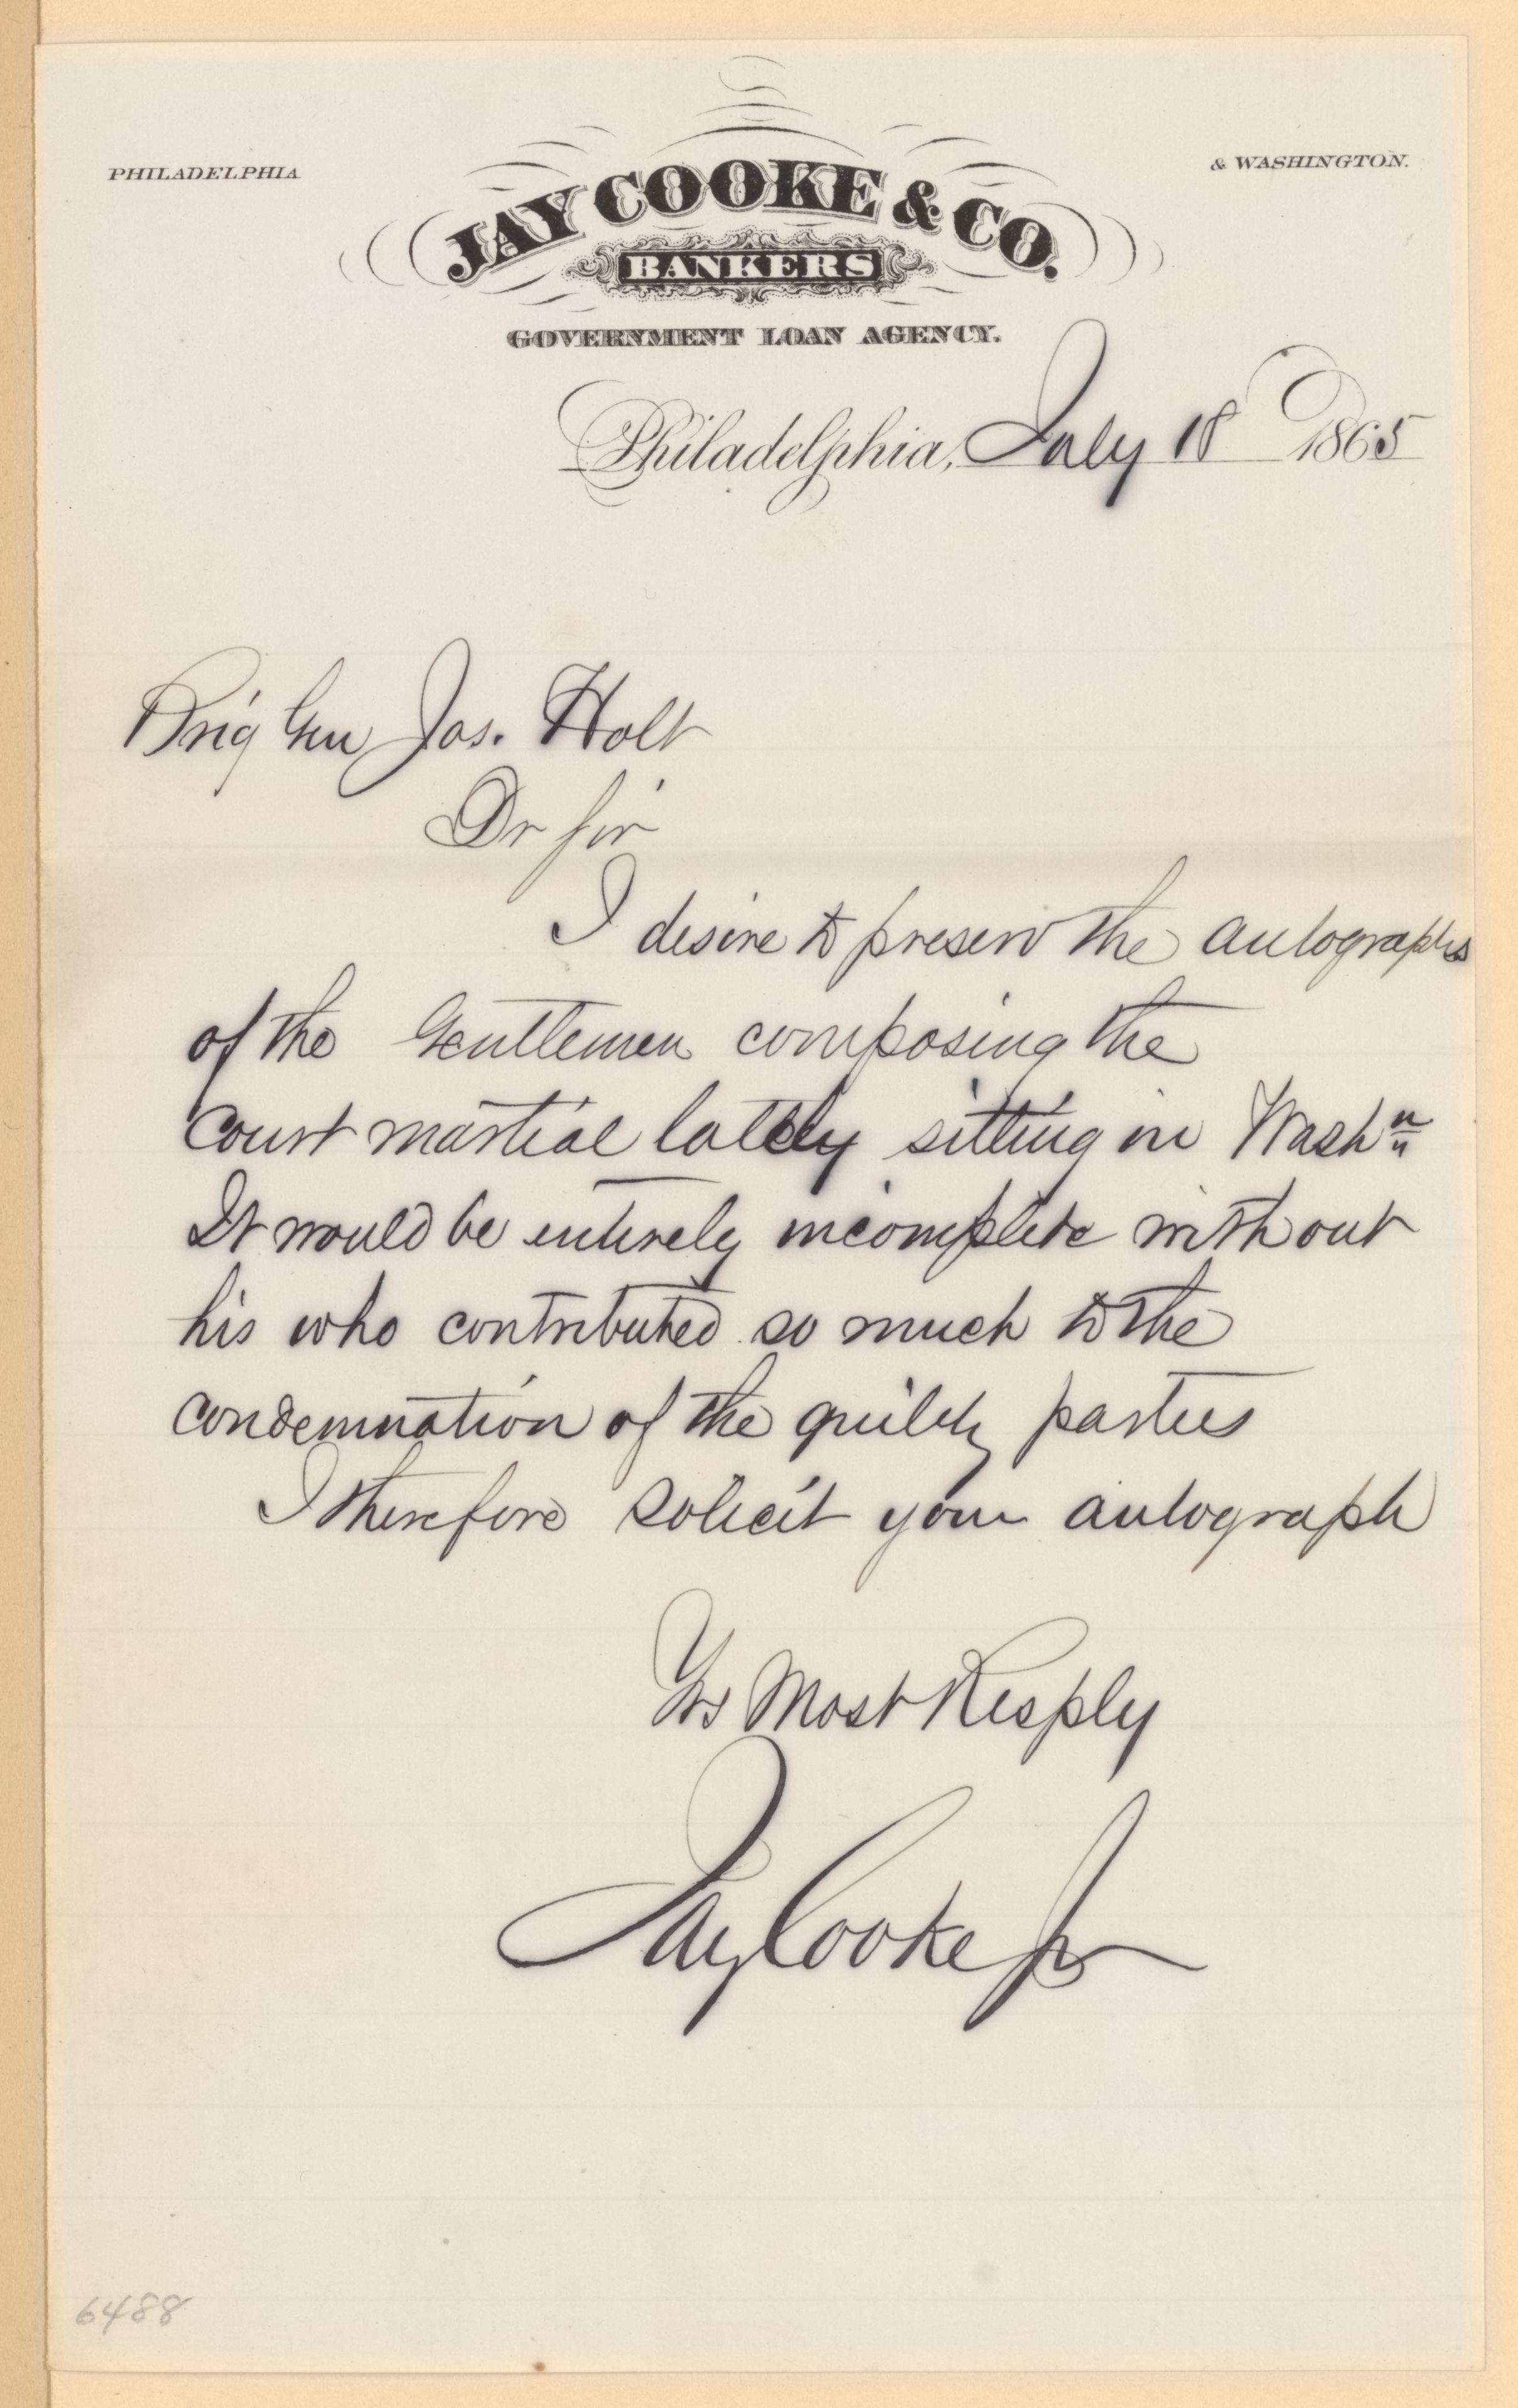 PHILADELPHIA
& WASHINGTON.
JAY COOKE & CO.
BANKERS
GOVERNMENT LOAN AGENCY.
Philadelphia, July 18 1865
Brig Gen Jos. Holt
Dr Sir
I desire to preserv the autographs
of the Gentlemen composing the
court martial lately sitting in Washn
It would be entirely incomplete without
his who contributed so much to the
condemnation of the guilty parties
I therefore solicit your autograph
Yrs Most Resply
Jay Cooke Jr
6488